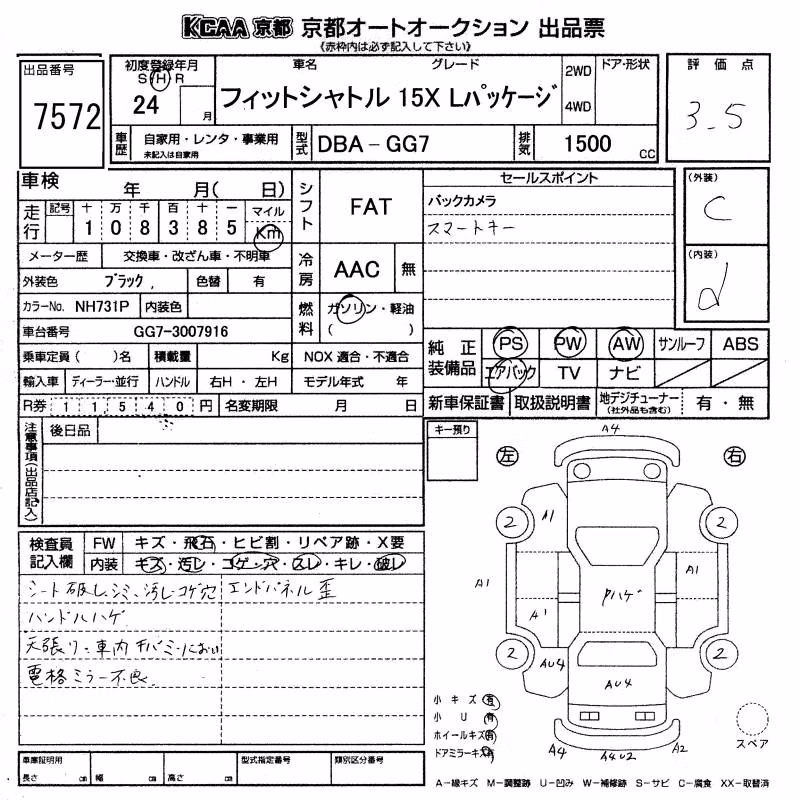 KCAA 京都 京都オートオークション 出品票
《赤枠内は必ず記入して下さい》
出品番号
7572
初度登録年月
S H R
24 月
車名 グレード
フィットシャトル 15X Lパッケージ
2WD
4WD
ドア・形状
評価点
3.5
車歴 自家用・レンタ・事業用
未記入は自家用
型式 DBA-GG7
排気 1500 CC
車検 年 月( 日)
走行 記号 十 万 千 百 十 一 マイル
1 0 8 3 8 5 Km
メーター歴 交換車・改ざん車・不明車
外装色 ブラック 色替 有
カラーNo. NH731P 内装色
車台番号 GG7-3007916
乗車定員( )名 積載量 Kg
輸入車 ディーラー・並行 ハンドル 右H・左H
R券 1 1 5 4 0 円 名変期限 月 日
シフト FAT
冷房 AAC 無
燃料 ガソリン・軽油
( )
NOX 適合・不適合
モデル年式 年
セールスポイント
バックカメラ
スマートキー
(外装)
C
(内装)
d
純正装備品 PS PW AW サンルーフ ABS
エアバック TV ナビ
新車保証書 取扱説明書 地デジチューナー(社外品も含む) 有・無
注意事項(出品店記入)
後日品
キー預り
検査員記入欄
FW キズ・飛石・ヒビ割・リペア跡・X要
内装 キズ・汚レ・コゲ・穴・スレ・キレ・破レ
シート破レ、シミ、汚レ コゲ穴 エンドパネル歪
ハンドルハゲ
天張り・車内 チバミ・におい
電格ミラー不良
左 右
A4
2 2
A1
A1 A1
A1
Pハゲ
2 2
AU4
AU4
A4 A4U2 A2
小キズ 有
小U 有
ホイールキズ 有
ドアミラーキズ 有
スペア
車庫証明用
長さ cm 幅 cm 高さ cm
型式指定番号 類別区分番号
A-線キズ M-調整跡 U-凹み W-補修跡 S-サビ C-腐食 XX-取替済